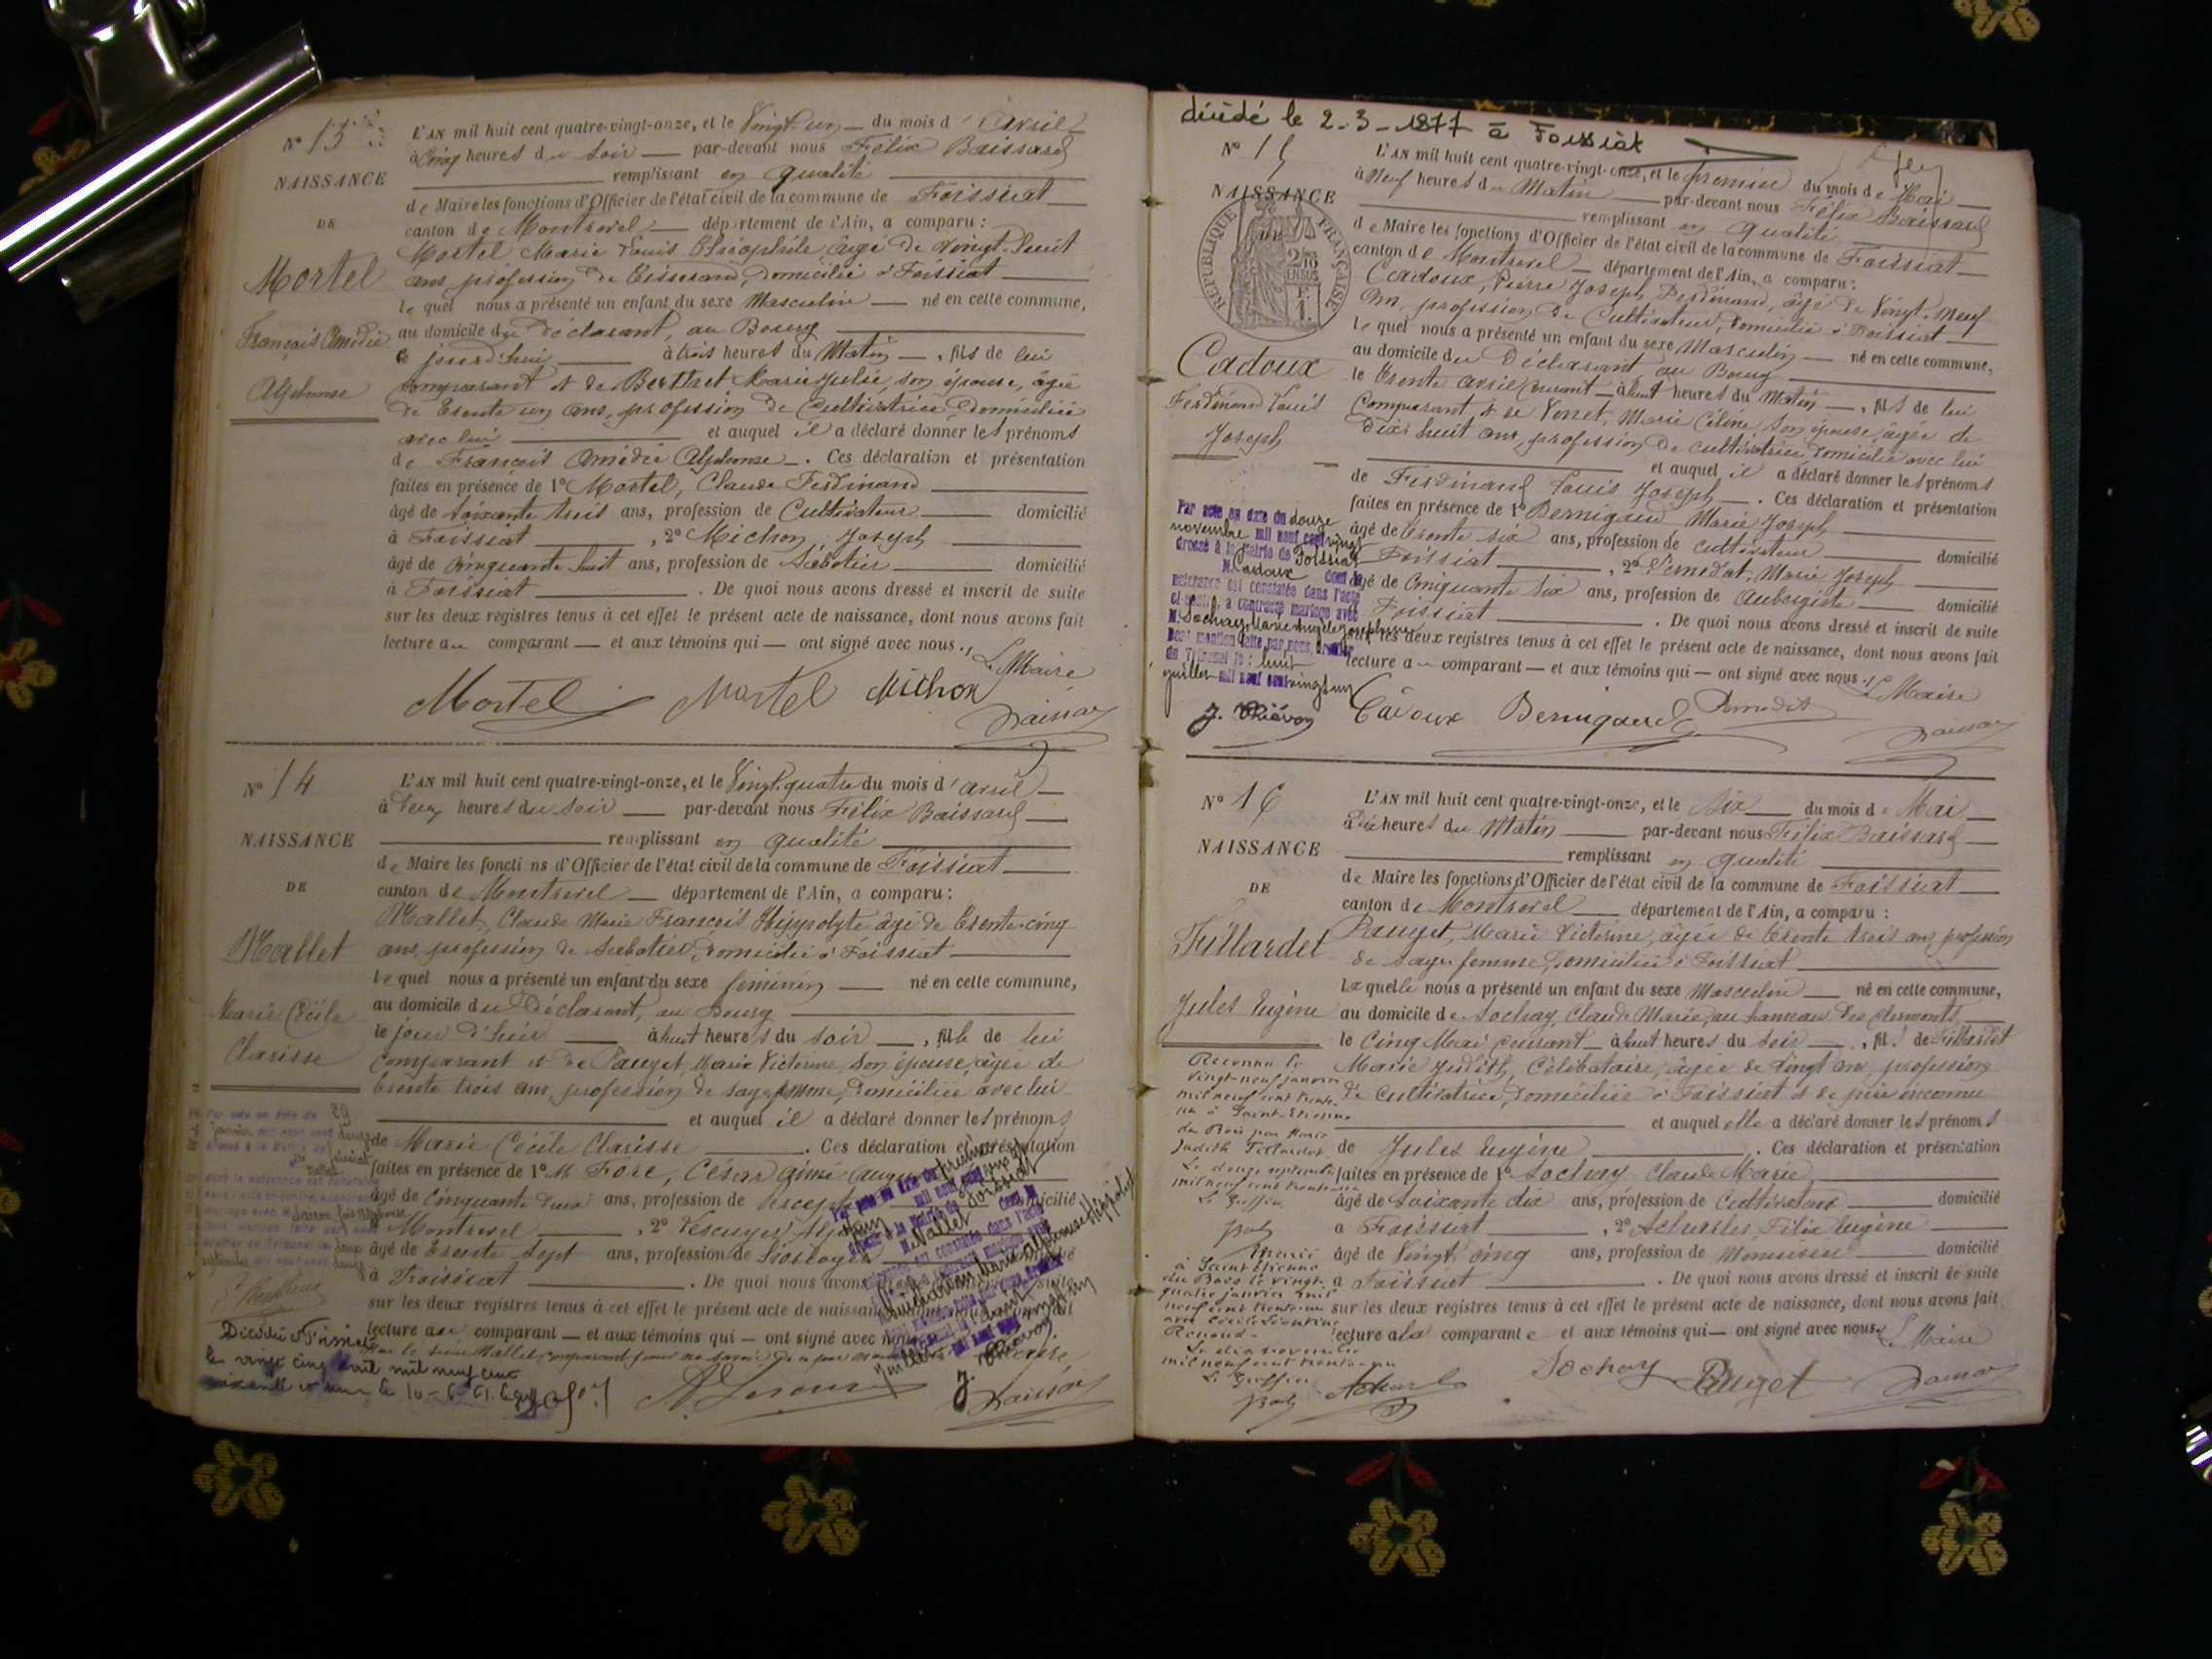 N° 13
NAISSANCE
DE
Mortel
François Amédée
Alphonse
L'AN mil huit cent quatre-vingt-onze, et le Vingt-un du mois d'Avril
à Cinq heures du Soir par-devant nous Félix Baissard
remplissant en qualité
de Maire les fonctions d'Officier de l'état civil de la commune de Foissiat
canton de Montrevel département de l'Ain, a comparu :
Mortel Marie Louis Théophile âgé de Vingt-huit
ans, profession de Tisserand, domicilié à Foissiat
lequel nous a présenté un enfant du sexe Masculin né en cette commune,
au domicile du déclarant, au Bourg
ce jourd'hui à trois heures du Matin, fils de lui
comparant et de Berthet Marie Julie, son épouse, âgée
de Trente un ans, profession de Cultivatrice domiciliée
avec lui et auquel il a déclaré donner les prénoms
de François Amédée Alphonse. Ces déclaration et présentation
faites en présence de 1° Mortel, Claude Ferdinand
âgé de Soixante trois ans, profession de Cultivateur domicilié
à Foissiat, 2° Michon, Joseph
âgé de Cinquante huit ans, profession de Sabotier domicilié
à Foissiat. De quoi nous avons dressé et inscrit de suite
sur les deux registres tenus à cet effet le présent acte de naissance, dont nous avons fait
lecture au comparant et aux témoins qui ont signé avec nous.
Le Maire
Mortel Mortel Michon
Baissard
N° 14
NAISSANCE
DE
Mallet
Marie Cécile
Clarisse
L'AN mil huit cent quatre-vingt-onze, et le Vingt-quatre du mois d'avril
à heures du Soir par-devant nous Félix Baissard
remplissant en qualité
de Maire les foncti ns d'Officier de l'état civil de la commune de Foissiat
canton de Montrevel département de l'Ain, a comparu :
Mallet, Claude Marie François Hippolyte âgé de Trente-cinq
ans, profession de Sabotier, domicilié à Foissiat
lequel nous a présenté un enfant du sexe féminin né en cette commune,
au domicile du Déclarant, au Bourg
le jour d'hui à huit heures du Soir, fille de lui
comparant et de Pauget, Marie Victorine, son épouse, âgée de
trente trois ans, profession de Sage femme, domiciliée avec lui
et auquel il a déclaré donner les prénoms
de Marie Cécile Clarisse. Ces déclaration et présentation
faites en présence de 1° M Fore, César Aimé
âgé de Cinquante deux ans, profession de domicilié
Montrevel, 2°
âgé de Trente Sept ans, profession de Horloger
à Foissiat. De quoi nous avons
sur les deux registres tenus à cet effet le présent acte de naissance
lecture au comparant et aux témoins qui ont signé avec nous
Par acte en date du 29
janvier
Baissard
décédé le 2-3-1877 à Foissiat
N° 15
NAISSANCE
DE
RÉPUBLIQUE FRANÇAISE
2/10 EN SUS
F. 1.
Cadoux
Ferdinand Louis
Joseph
L'AN mil huit cent quatre-vingt-onze, et le premier du mois de Mai
à Neuf heures du Matin par-devant nous Félix Baissard
remplissant en qualité
de Maire les fonctions d'Officier de l'état civil de la commune de Foissiat
canton de Montrevel département de l'Ain, a comparu :
Cadoux, Pierre Joseph Ferdinand, âgé de Vingt-Neuf
ans, profession de Cultivateur, domicilié à Foissiat
lequel nous a présenté un enfant du sexe Masculin né en cette commune,
au domicile du Déclarant au Bourg
le Trente avril courant à huit heures du Matin, fils de lui
Comparant et de Verret, Marie Céline, son épouse, âgée de
Dix huit ans, profession de cultivatrice, domiciliée avec lui
et auquel il a déclaré donner les prénoms
de Ferdinand Louis Joseph. Ces déclaration et présentation
faites en présence de 1° Bernigaud Marie Joseph
âgé de trente six ans, profession de cultivateur domicilié
Foissiat, 2° Marie Joseph
âgé de Cinquante Six ans, profession de Aubergiste domicilié
Foissiat. De quoi nous avons dressé et inscrit de suite
les deux registres tenus à cet effet le présent acte de naissance, dont nous avons fait
lecture au comparant et aux témoins qui ont signé avec nous.
Par acte en date du douze
novembre mil neuf cent vingt
dressé à la mairie de Foissiat
M. Cadoux dont la
naissance est constatée dans l'acte
ci-contre, a contracté mariage avec
M. Sochay Marie Angèle Joséphine
Dont mention faite par nous, greffier
du Tribunal le : huit
juillet mil neuf cent vingt un
Le Maire
Cadoux Bernigaud
Baissard
N° 16
NAISSANCE
DE
Fillardet
Jules Eugène
L'AN mil huit cent quatre-vingt-onze, et le Six du mois de Mai
à dix heures du Matin par-devant nous Félix Baissard
remplissant en qualité
de Maire les fonctions d'Officier de l'état civil de la commune de Foissiat
canton de Montrevel département de l'Ain, a comparu :
Pauget, Marie Victorine, âgée de trente trois ans, profession
de Sage femme, domiciliée à Foissiat
laquelle nous a présenté un enfant du sexe Masculin né en cette commune,
au domicile de Sochay, Claude Marie, au hameau des Clermonts
le Cinq Mai courant à huit heures du Soir, fils de Fillardet
Marie Judith, Célibataire, âgée de Vingt ans, profession
de Cultivatrice, domiciliée à Foissiat et de père inconnu
et auquel elle a déclaré donner les prénoms
de Jules Eugène. Ces déclaration et présentation
faites en présence de 1° Sochay Claude Marie
âgé de Soixante dix ans, profession de Cultivateur domicilié
à Foissiat, 2° Félix Eugène
âgé de Vingt cinq ans, profession de Menuisier domicilié
à Foissiat. De quoi nous avons dressé et inscrit de suite
sur les deux registres tenus à cet effet le présent acte de naissance, dont nous avons fait
lecture à la comparante et aux témoins qui ont signé avec nous.
Reconnu le
vingt-neuf janvier
mil neuf cent trente-
un à Saint-Etienne
du Bois par Marie
Judith Fillardet
Le douze septembre
mil neuf cent trente-un
Le Greffier
Marié
à Saint Etienne
du Bois le vingt-
quatre janvier mil
neuf cent trente-un
avec Cécile Léontine
Renoud
Le dix novembre
mil neuf cent trente-un
Le Greffier
Le Maire
Sochay Pauget
Baissard